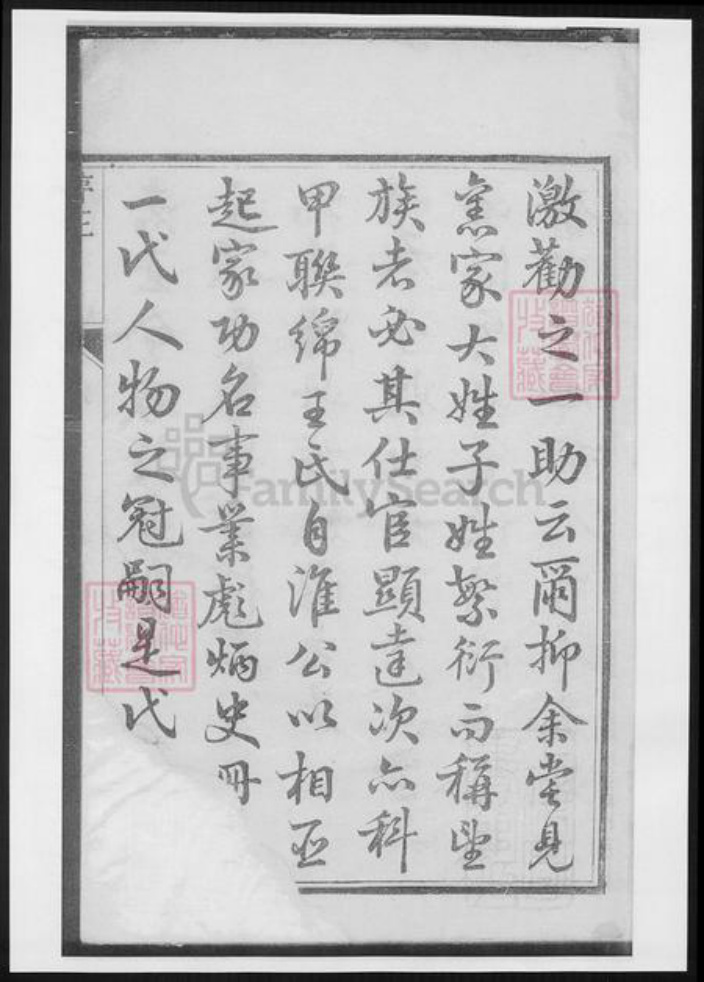 激勸之一助云爾抑余嘗見
㝬家大姓子姓繁衍而稱望
族者必其仕宦顯達次亦科
甲聯綿王氏自淮公以相丞
起家功名事業彪炳史冊
一代人物之冠嗣是代
FamilySearch